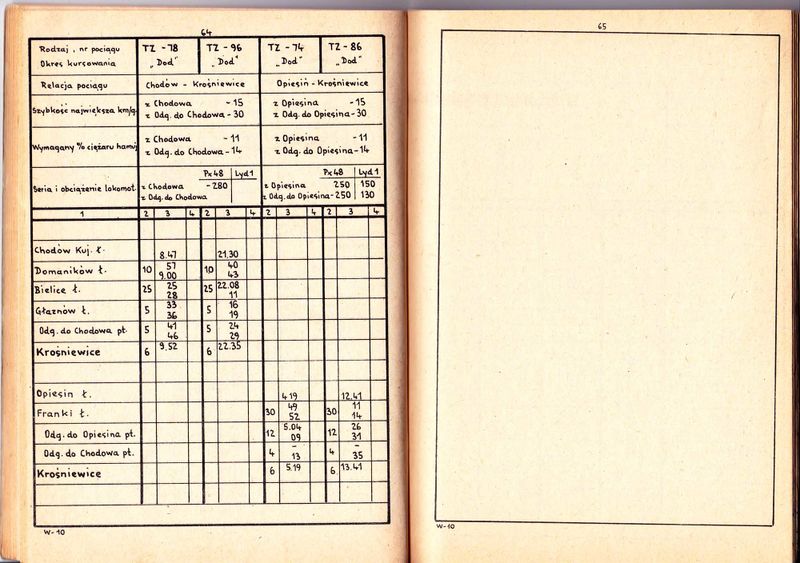 64
Rodzaj, nr pociągu TZ-78 TZ-96 TZ-74 TZ-86
Okres kursowania „Dod" „Dod" „Dod" „Dod"
Relacja pociągu Chodów - Krośniewice Opiesin - Krośniewice
Szybkość największa km/g. z Chodowa -15 z Opiesina -15
z Odg. do Chodowa -30 z Odg. do Opiesina -30
Wymagany % ciężaru hamuj. z Chodowa -11 z Opiesina -11
z Odg. do Chodowa -14 z Odg. do Opiesina -14
Px48 Lyd1 Px48 Lyd1
Seria i obciążenie lokomot. z Chodowa -280 z Opiesina 250 150
z Odg. do Chodowa z Odg. do Opiesina -250 130
1 2 3 4 2 3 4 2 3 4 2 3 4
Chodów Kuj. Ł. 8.47 21.30
Domaników Ł. 10 57 10 40
9.00 43
Bielice Ł. 25 25 25 22.08
28 11
Głaznów Ł. 5 33 5 16
36 19
Odg. do Chodowa pt. 5 41 5 24
46 29
Krośniewice 6 9.52 6 22.35
Opiesin Ł. 4.19 12.41
Franki Ł. 30 49 30 11
52 14
Odg. do Opiesina pt. 12 5.04 12 26
09 31
Odg. do Chodowa pt. 4 – 4 –
13 35
Krośniewice 6 5.19 6 13.41
W-10
65
W-10